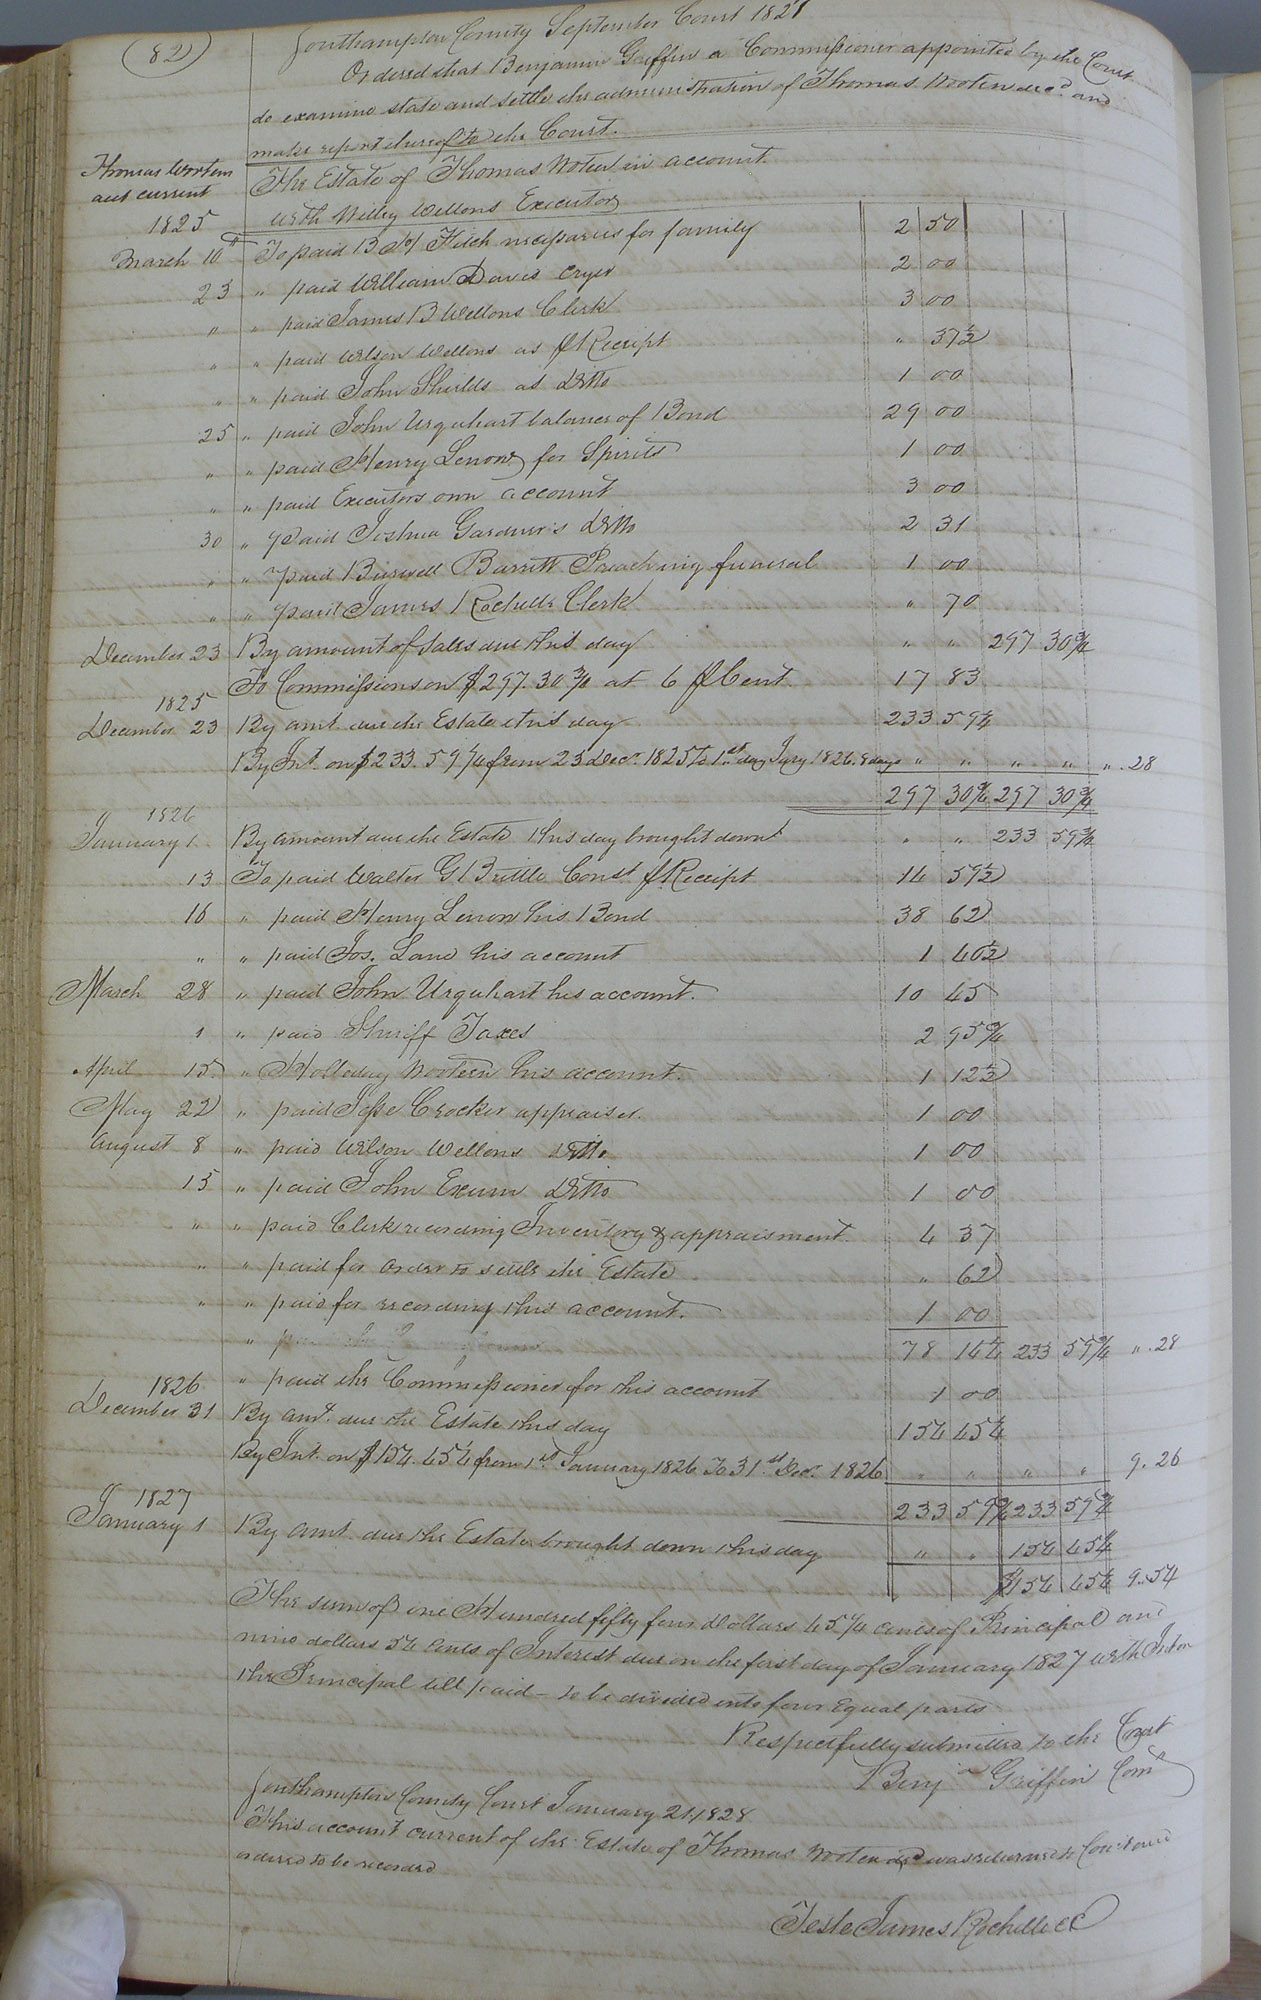 (82)
Southampton County September Court 1827
Ordered that Benjamin Griffin a Commissioner appointed by the Court
do examine state and settle the administration of Thomas Wooten decd. and
make report thereof to the Court.
Thomas Wooten
acct current
The Estate of Thomas Wooten in account
1825 with Willey Wellons Executor
March 10th To paid B H Fitch necessaries for family 2 50
23 " paid William Davis Cryer 2 00
" " paid James B Wellons Clerk 3 00
" " paid Wilson Wellons as pr Receipt " 37½
" " paid John Shields as Ditto 1 00
25 " paid John Urquhart balance of Bond 29 00
" " paid Henry Lenow for Spirits 1 00
" " paid Executors own account 3 00
30 " paid Joshua Gardner's Ditto 2 31
" " paid Burwell Barrett Preaching funeral 1 00
" " paid James Rochelle Clerk " 70
December 23 By amount of Sales due this day " " 297 30¾
To Commissions on $297.30¾ at 6 pr Cent 17 83
1825
December 23 By amt. due the Estate this day 233 59¼
By Int. on $233.59¼ from 23 Decr. 1825 to 1st day Jany. 1826. 8 days " " " " " .28
297 30¾ 297 30¾
1826
January 1 By amount due the Estate this day brought down " " 233 59¾
13 To paid Walter G Brittle Const. pr Receipt 14 59½
16 " paid Henry Lenow his Bond 38 62
" " paid Jos. Lane his account 1 40½
March 28 " paid John Urquhart his account. 10 45
1 " paid Sheriff Taxes 2 95¾
April 15 " Holladay Wooten his account. 1 12½
May 22 " paid Jesse Crocker appraiser. 1 00
August 8 " paid Wilson Wellons Ditto 1 00
15 " paid John Exum Ditto 1 00
" " paid Clerk recording Inventory & appraisment 4 37
" " paid for order to settle the Estate " 62
" " paid for recording this account. 1 00
" 78 14¼ 233 59¾ " .28
1826 " paid the Commissioner for his account 1 00
December 31 By amt. due the Estate this day 154 45¼
By Int. on $154.45¼ from 1st January 1826 To 31st Decr. 1826 " " " " 9.26
1827 233 59¾ 233 59¾
January 1 By amt. due the Estate brought down this day " " 154 45¼
$154 45¼ 9.54
The sum of one Hundred fifty four Dollars 45¼ cents of Principal and
nine dollars 54 cents of Interest due on the first day of January 1827 with Int on
the Principal till paid - to be divided into four Equal parts
Respectfully submitted to the Court
Benjn Griffin Comr
Southampton County Court January 21. 1828
This account current of the Estate of Thomas Wooten decd was returned to Court and
ordered to be recorded
Teste James Rochelle CC